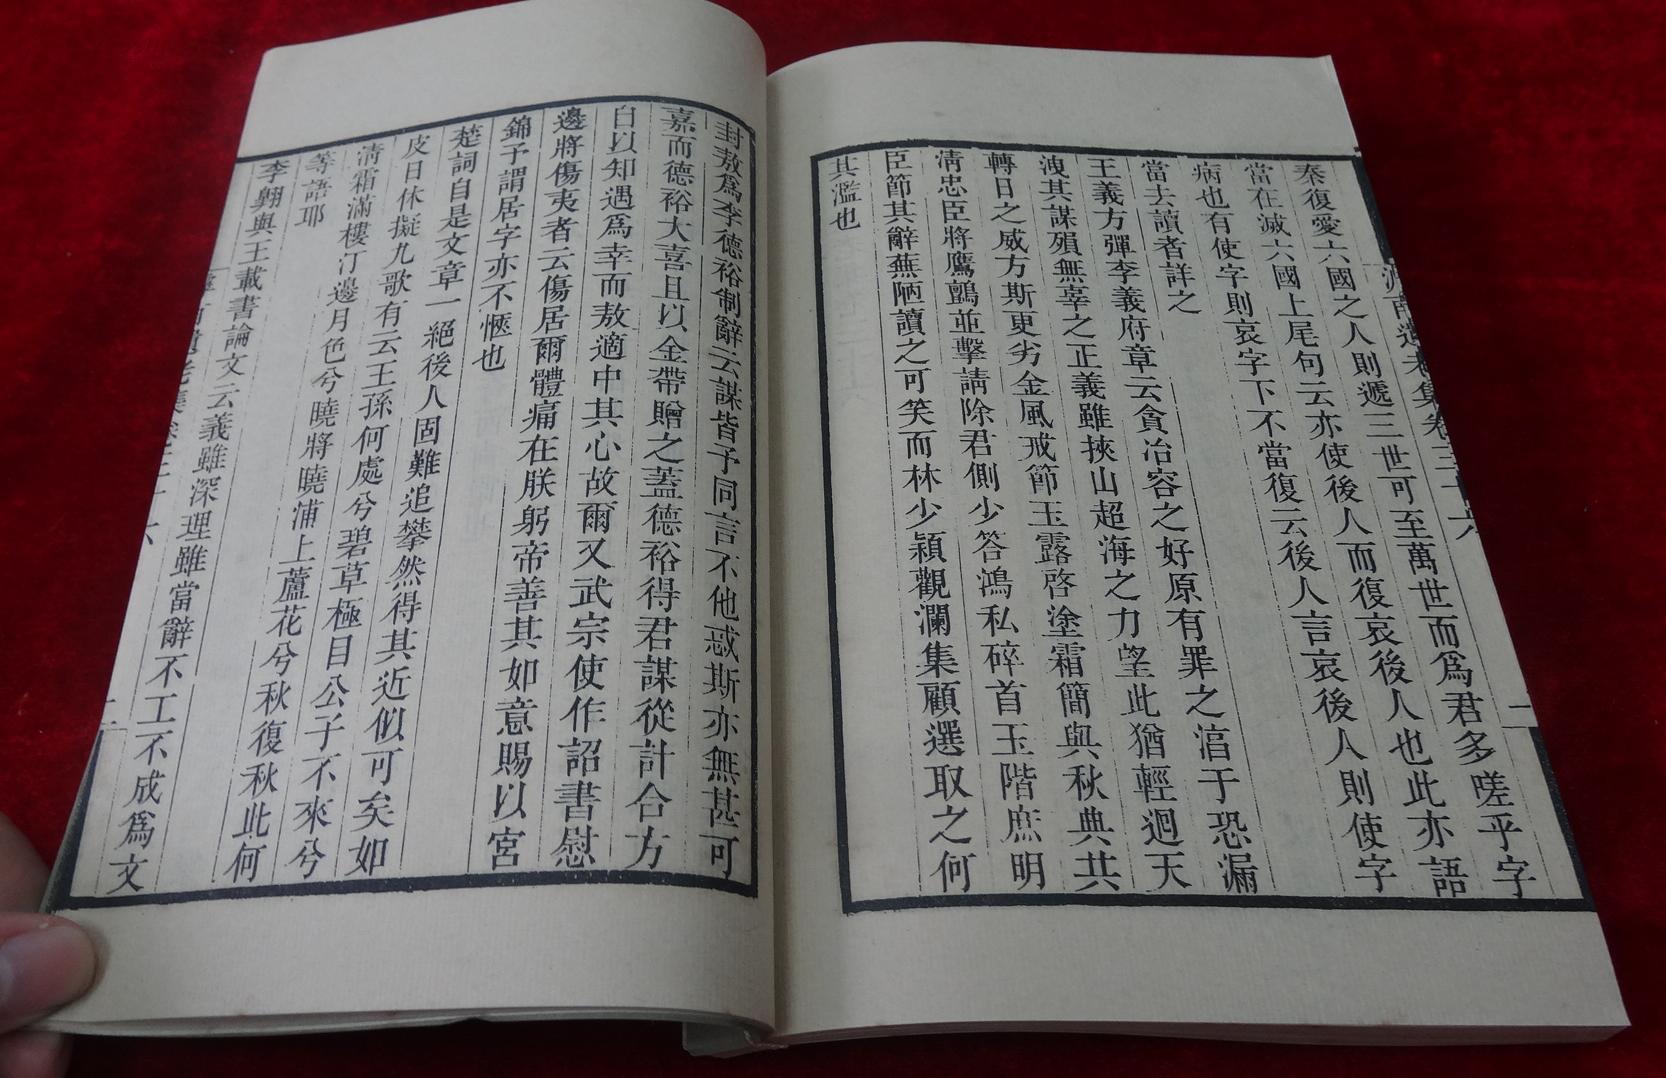 滹南遺老集卷三十六
二
秦復愛六國之人則遞三世可至萬世而爲君多嗟乎字
當在滅六國上尾句云亦使後人而復哀後人也此亦語
病也有使字則哀字下不當復云後人言哀後人則使字
當去讀者詳之
王義方彈李義府章云貪冶容之好原有罪之淳于恐漏
洩其謀殞無辜之正義雖挾山超海之力望此猶輕迴天
轉日之威方斯更劣金風戒節玉露啓塗霜簡與秋典共
清忠臣將鷹鸇並擊請除君側少答鴻私碎首玉階庶明
臣節其辭蕪陋讀之可笑而林少穎觀瀾集顧選取之何
其濫也
封敖爲李德裕制辭云謀皆予同言不他惑斯亦無甚可
嘉而德裕大喜且以金帶贈之蓋德裕得君謀從計合方
自以知遇爲幸而敖適中其心故爾又武宗使作詔書慰
邊將傷夷者云傷居爾體痛在朕躬帝善其如意賜以宮
錦予謂居字亦不愜也
楚詞自是文章一絕後人固難追攀然得其近似可矣如
皮日休擬九歌有云王孫何處兮碧草極目公子不來兮
清霜滿樓汀邊月色兮曉將曉浦上蘆花兮秋復秋此何
等語耶
李翱與王載書論文云義雖深理雖當辭不工不成爲文
南遺老集卷三十六
二